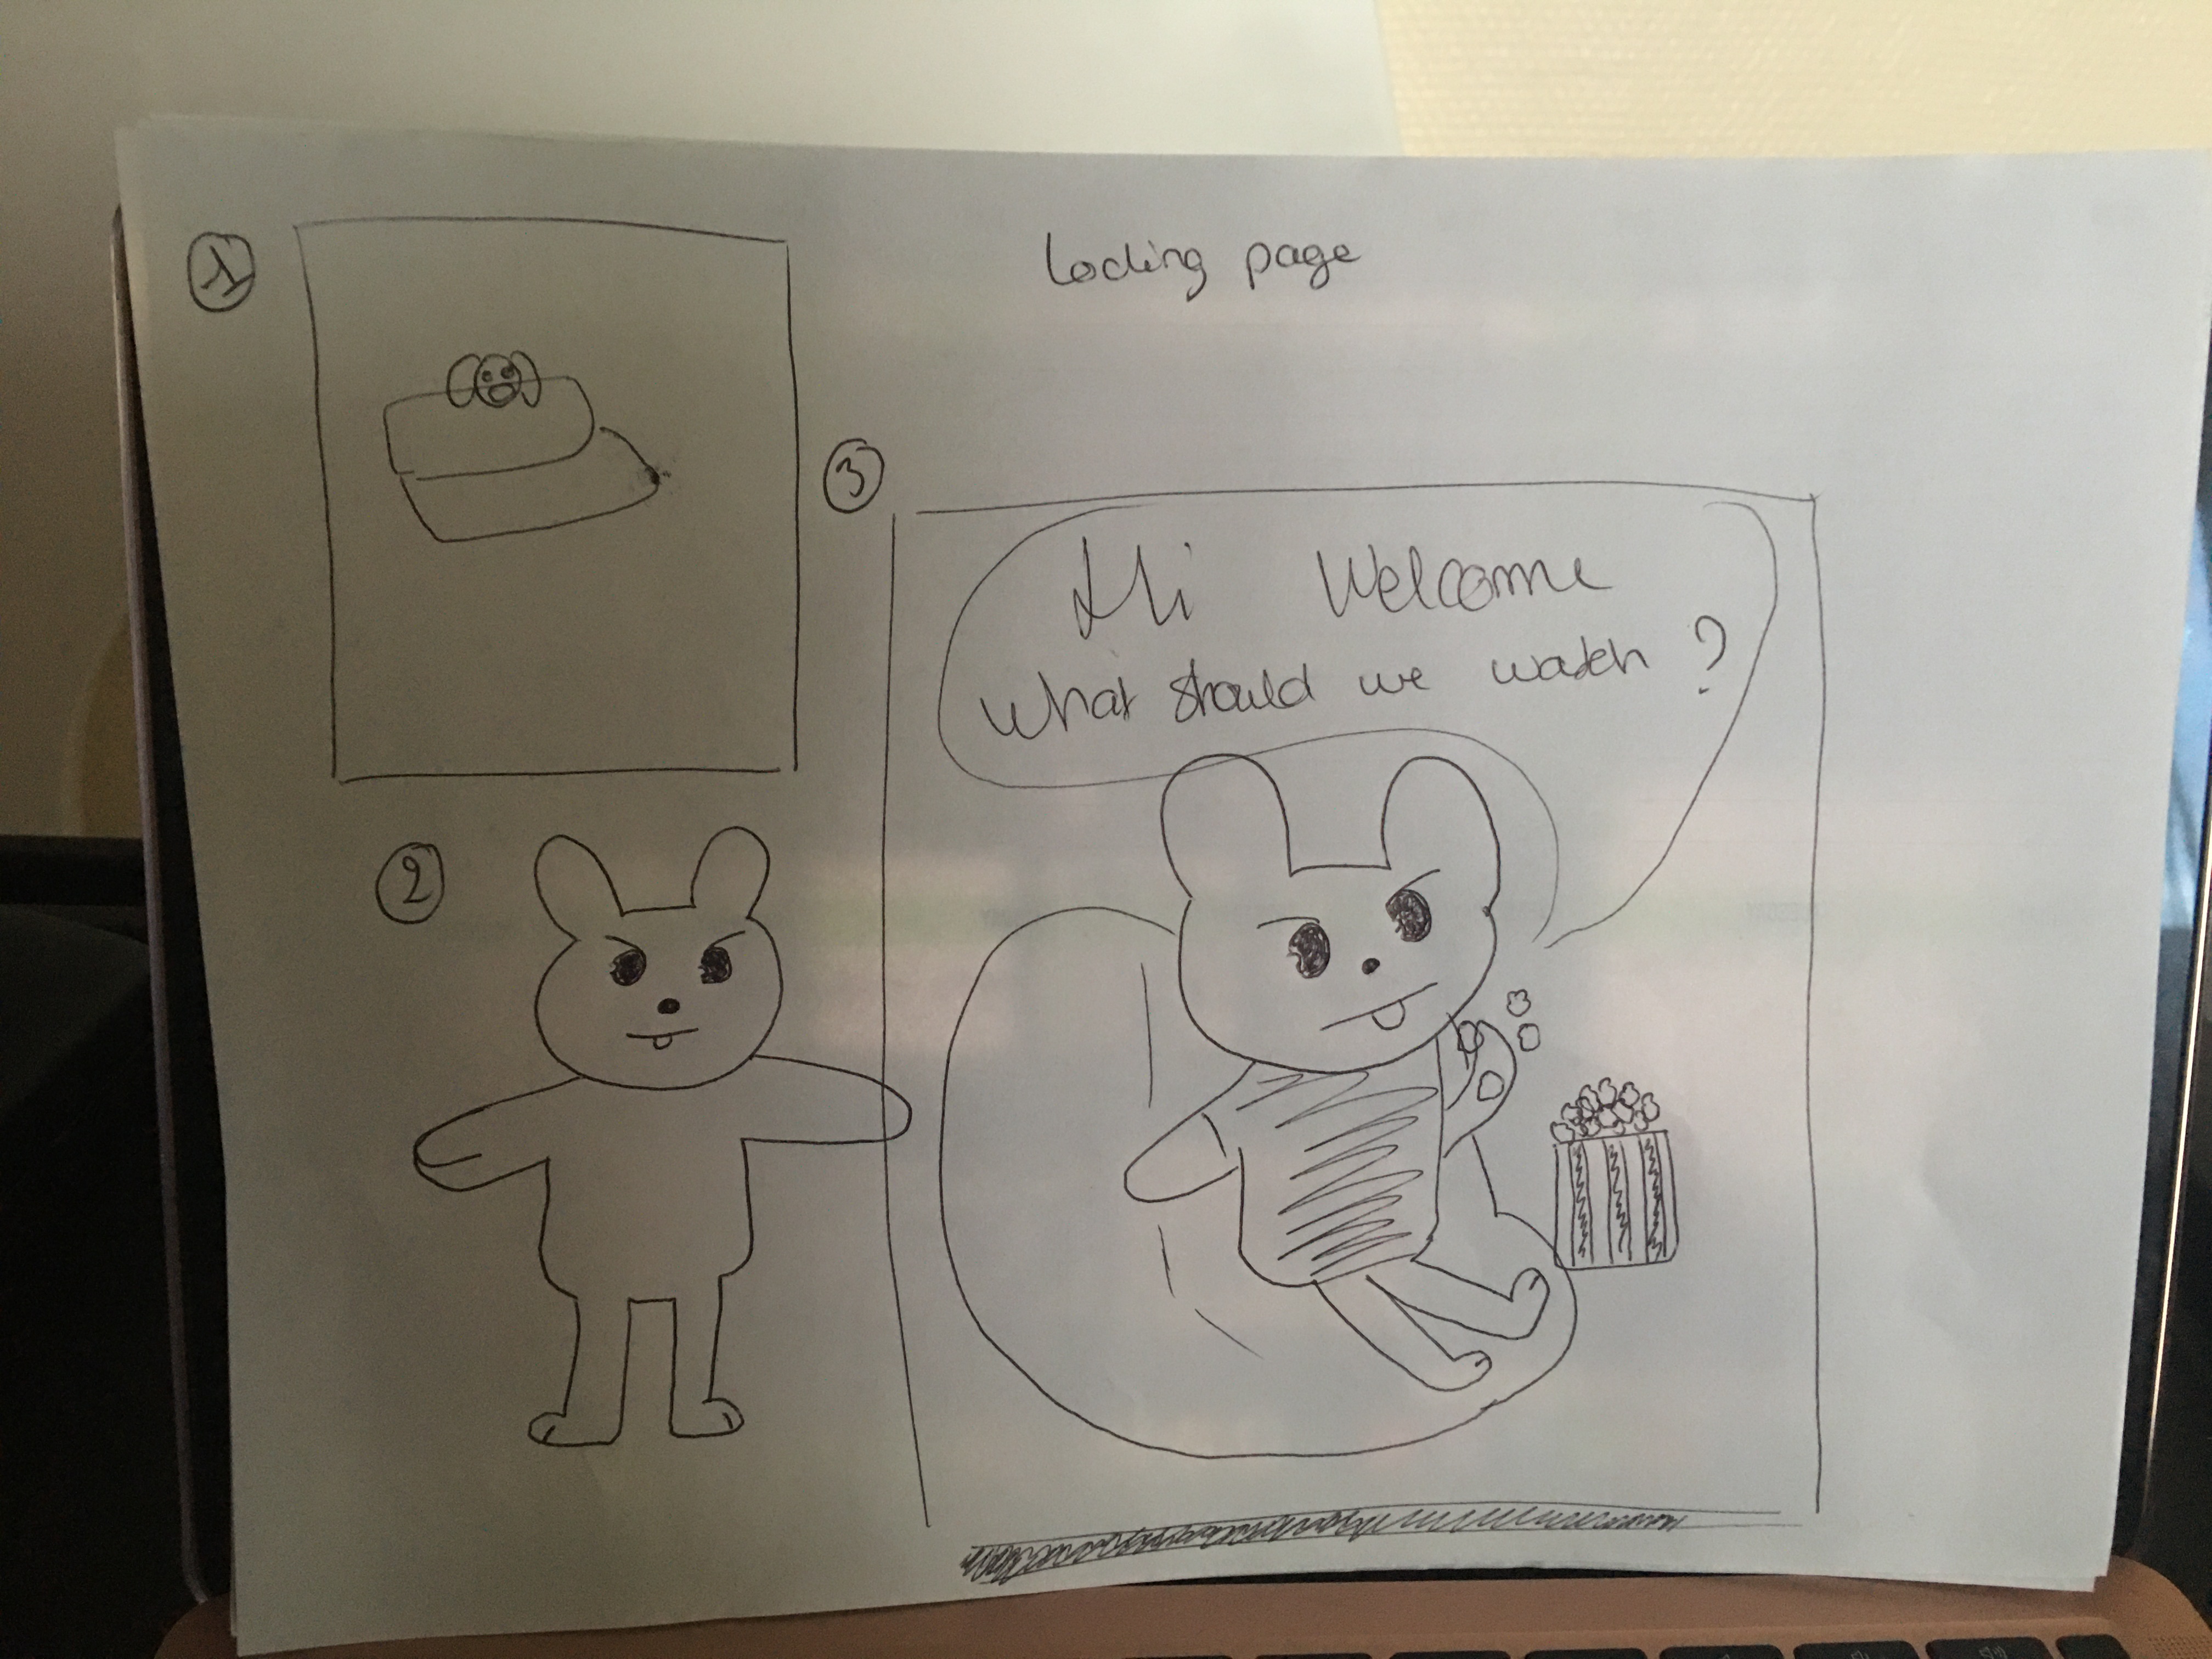 1
Loading page
3
Hi Welcome
What should we watch ?
2